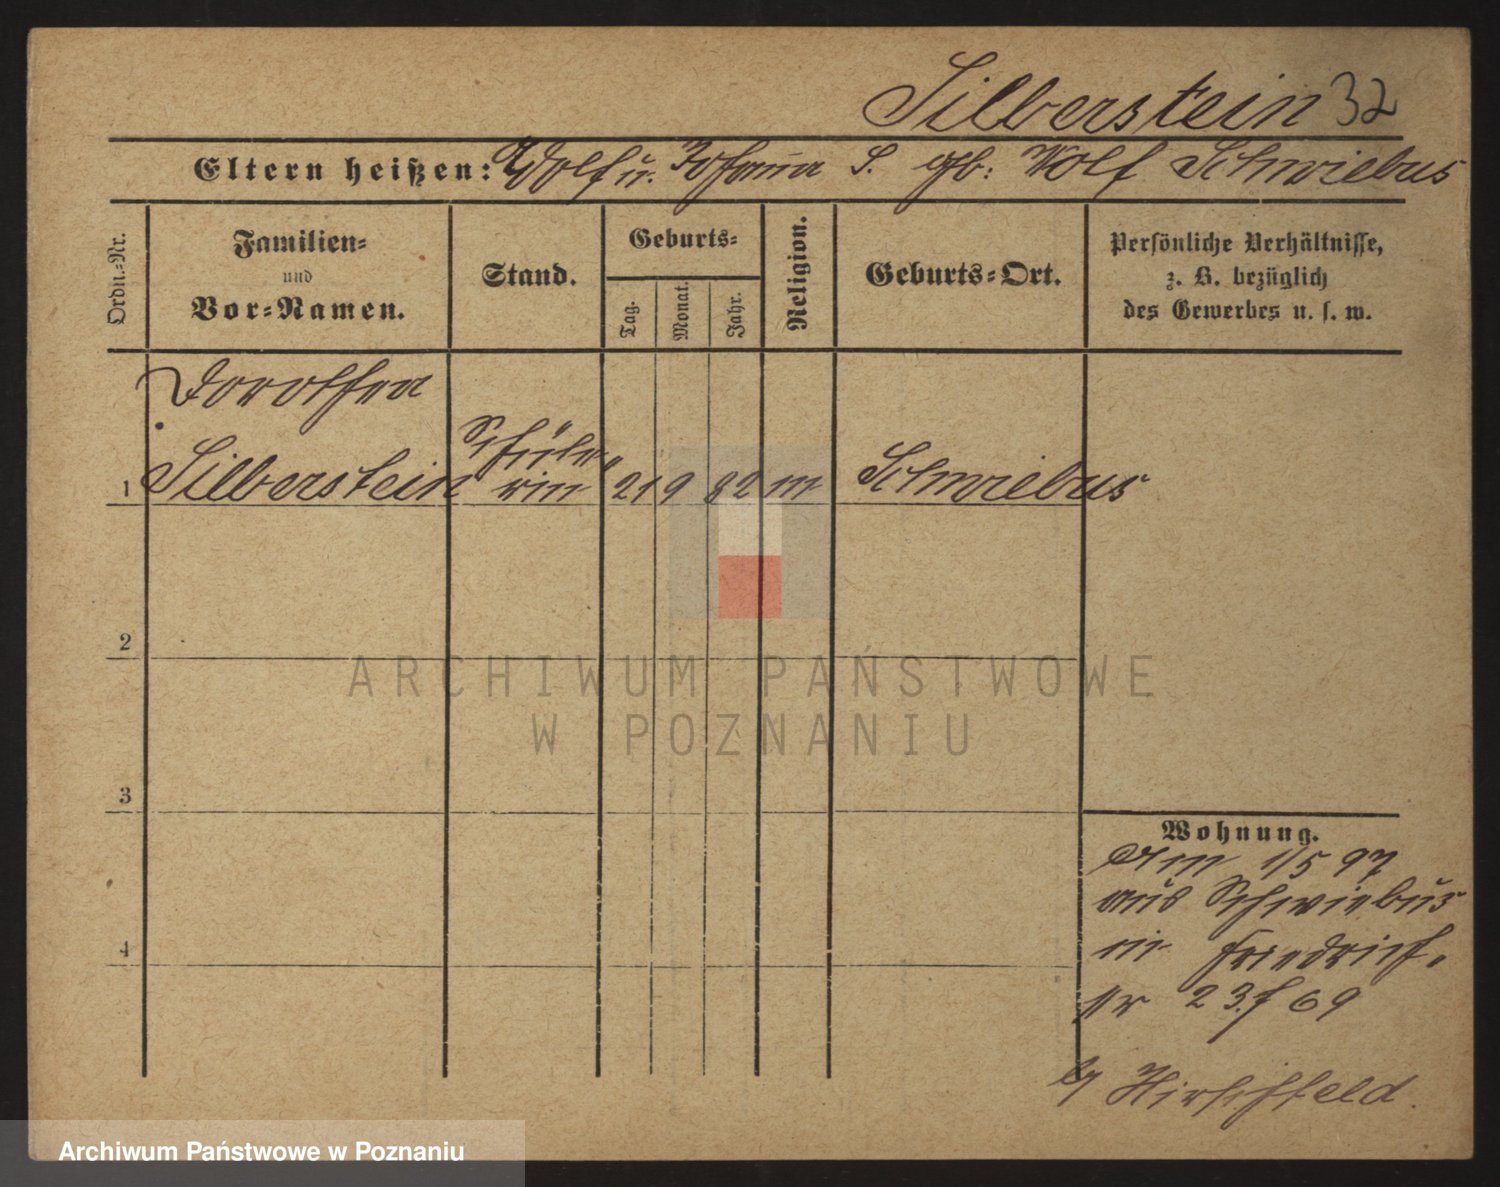 Silberstein 32
Eltern heißen: Adolf u. Johanna S. geb. Wolf Schwiebus
Ordn.-Nr.
Familien-
und
Vor-Namen.
Stand.
Geburts-
Tag.
Monat.
Jahr.
Religion.
Geburts-Ort.
Persönliche Verhältnisse,
z. B. bezüglich
des Gewerbes u. s. w.
Dorothea
1 Silberstein Schüle-
rin 21 9 82 m Schwiebus
2
3
4
Wohnung.
Am 1/5 97
aus Schwiebus
in Friedrich-
str 23. f 69
b/ Hirschfeld.
ARCHIWUM PAŃSTWOWE
W POZNANIU
Archiwum Państwowe w Poznaniu